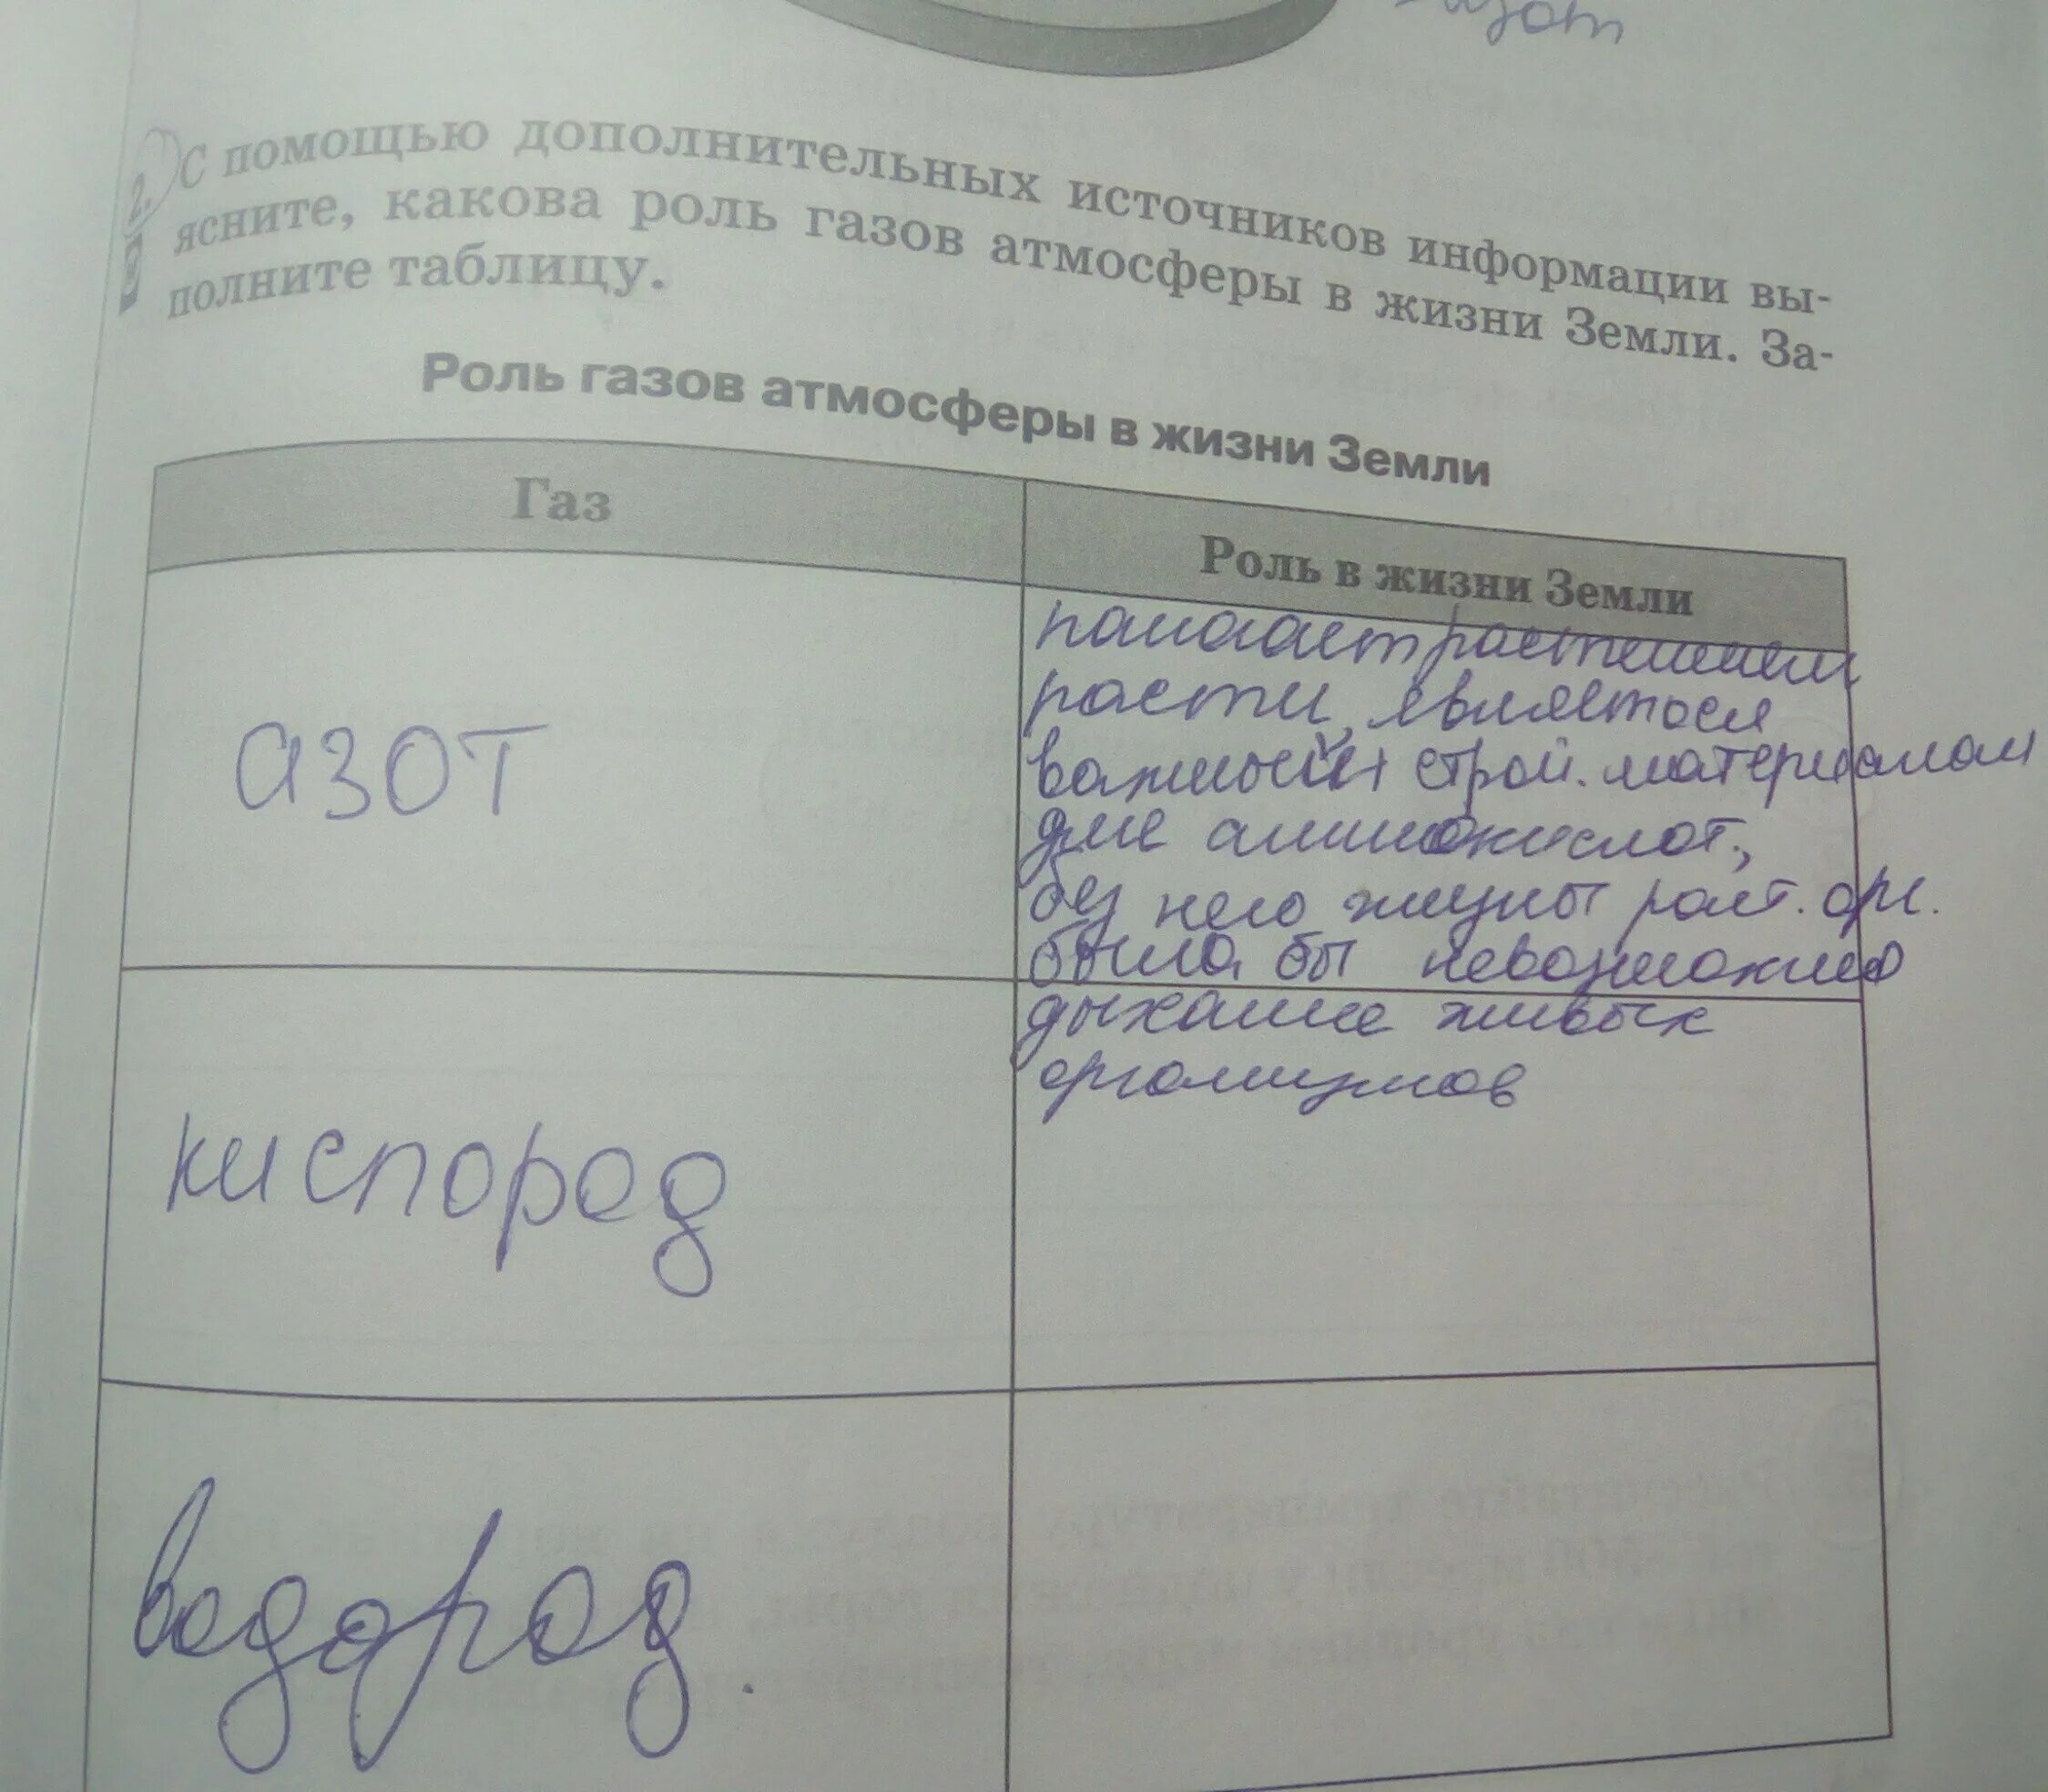 азот
2. С помощью дополнительных источников информации вы-
ясните, какова роль газов атмосферы в жизни Земли. За-
полните таблицу.
Роль газов атмосферы в жизни Земли
Газ
Роль в жизни Земли
азот
растениям
расти, являеться
важный строй. материалом
для аминокислот,
без него жизнь раст. орг.
была бы невозможна
кислород
дыхание живых
организмов
водород.